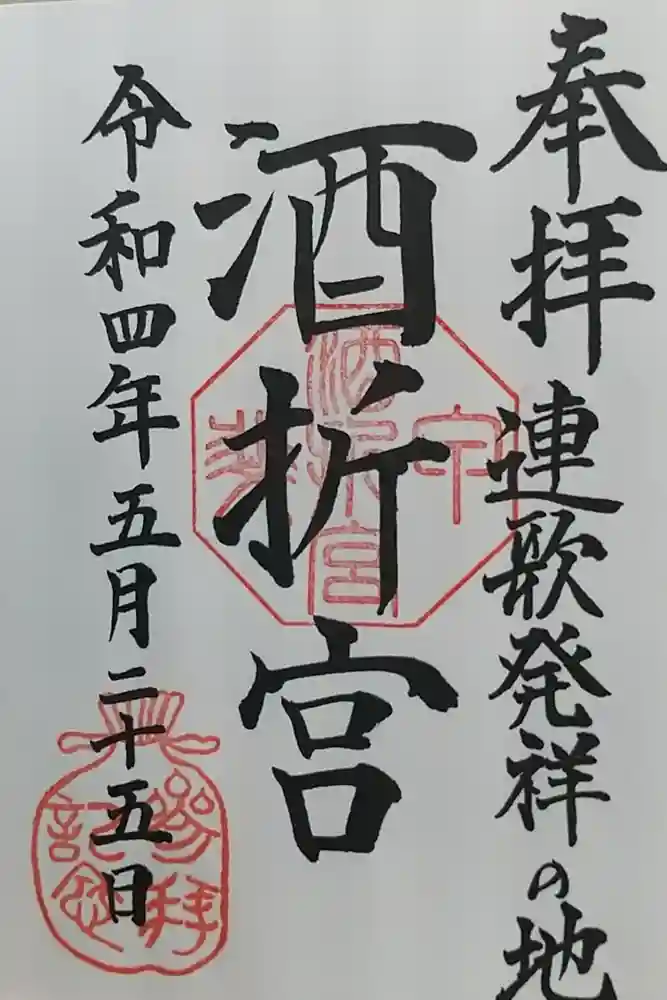 奉拝
連歌発祥の地
酒折宮
令和四年五月二十五日
酒折宮
参拝
記念